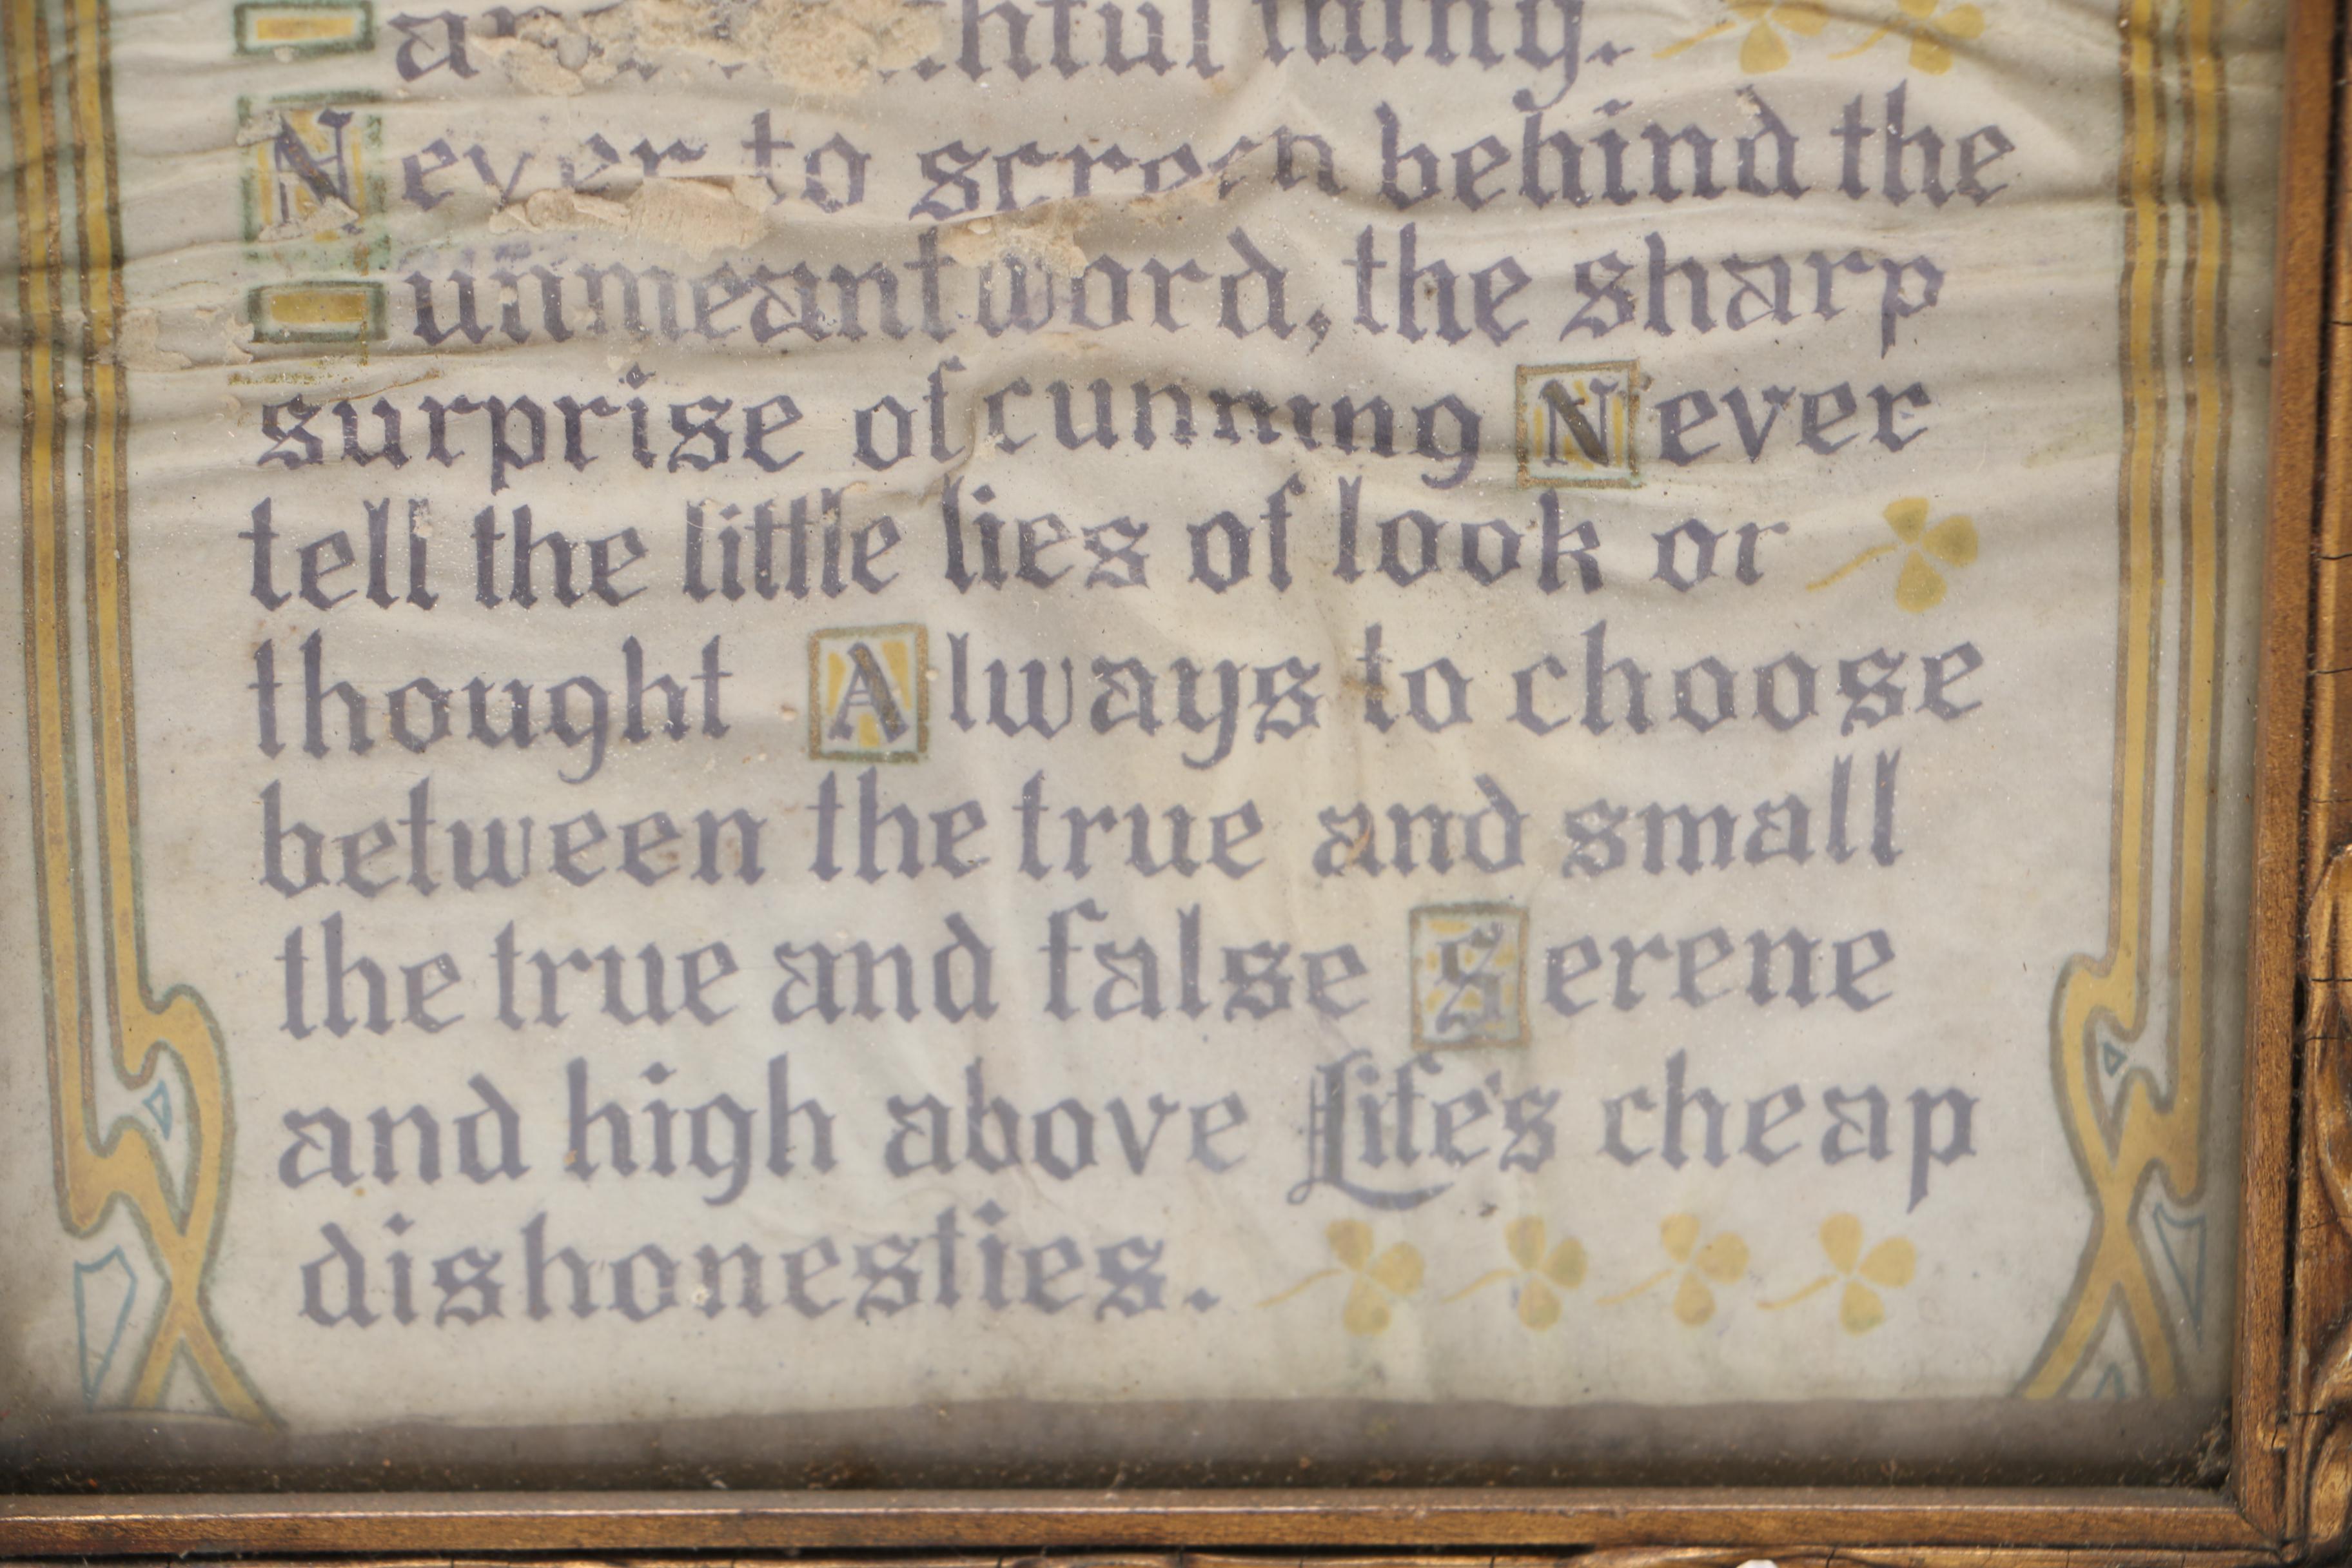 thing.
Never to screen behind the
unmeant word, the sharp
surprise of cunning Never
tell the little lies of look or
thought Always to choose
between the true and small
the true and false Serene
and high above Life's cheap
dishonesties.